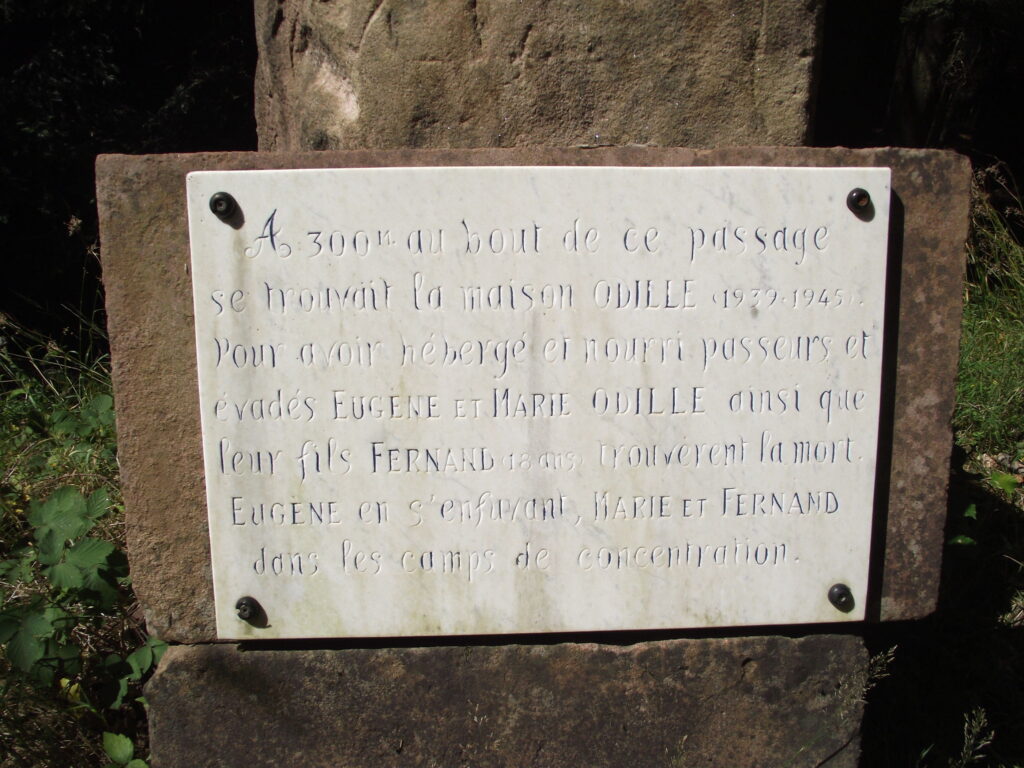 A 300 M. au bout de ce passage
se trouvait la maison ODILLE (1939-1945).
Pour avoir hébergé et nourri passeurs et
évadés EUGÈNE ET MARIE ODILLE ainsi que
leur fils FERNAND (18 ans) trouvèrent la mort.
EUGÈNE en s'enfuyant, MARIE ET FERNAND
dans les camps de concentration.